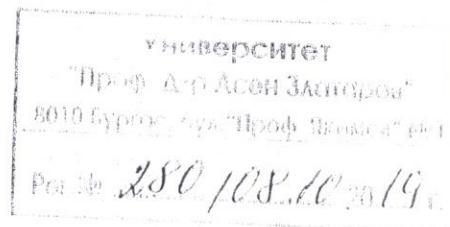 Университет
"Проф. д-р Асен Златаров"
8010 Бургас, бул. "Проф. Якимов" № 1
Рег. № 280 / 08.10 2019 г.